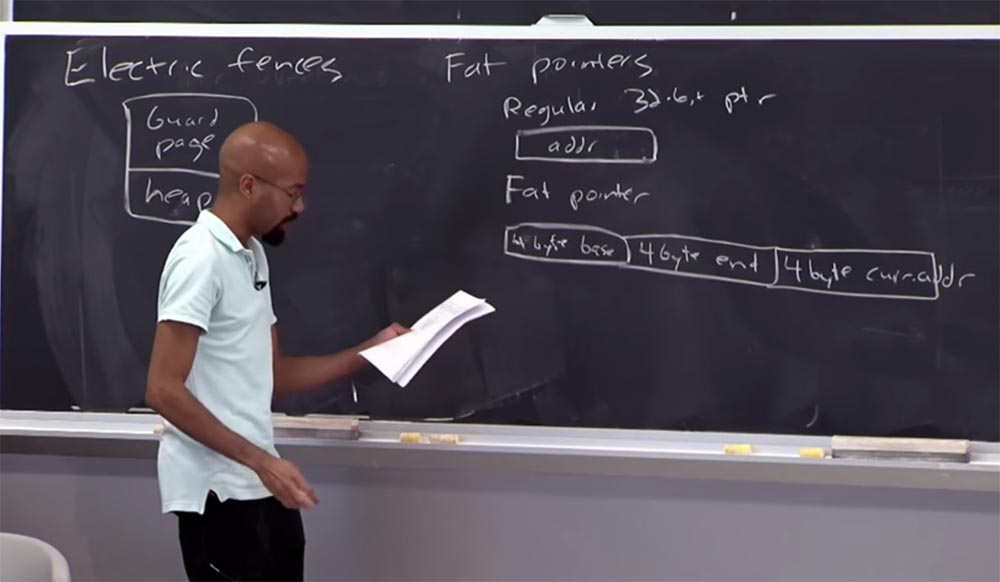 Electric fences
Guard
page
heap
Fat pointers
Regular 32-bit ptr
addr
Fat pointer
4 byte base 4 byte end 4 byte curr.addr